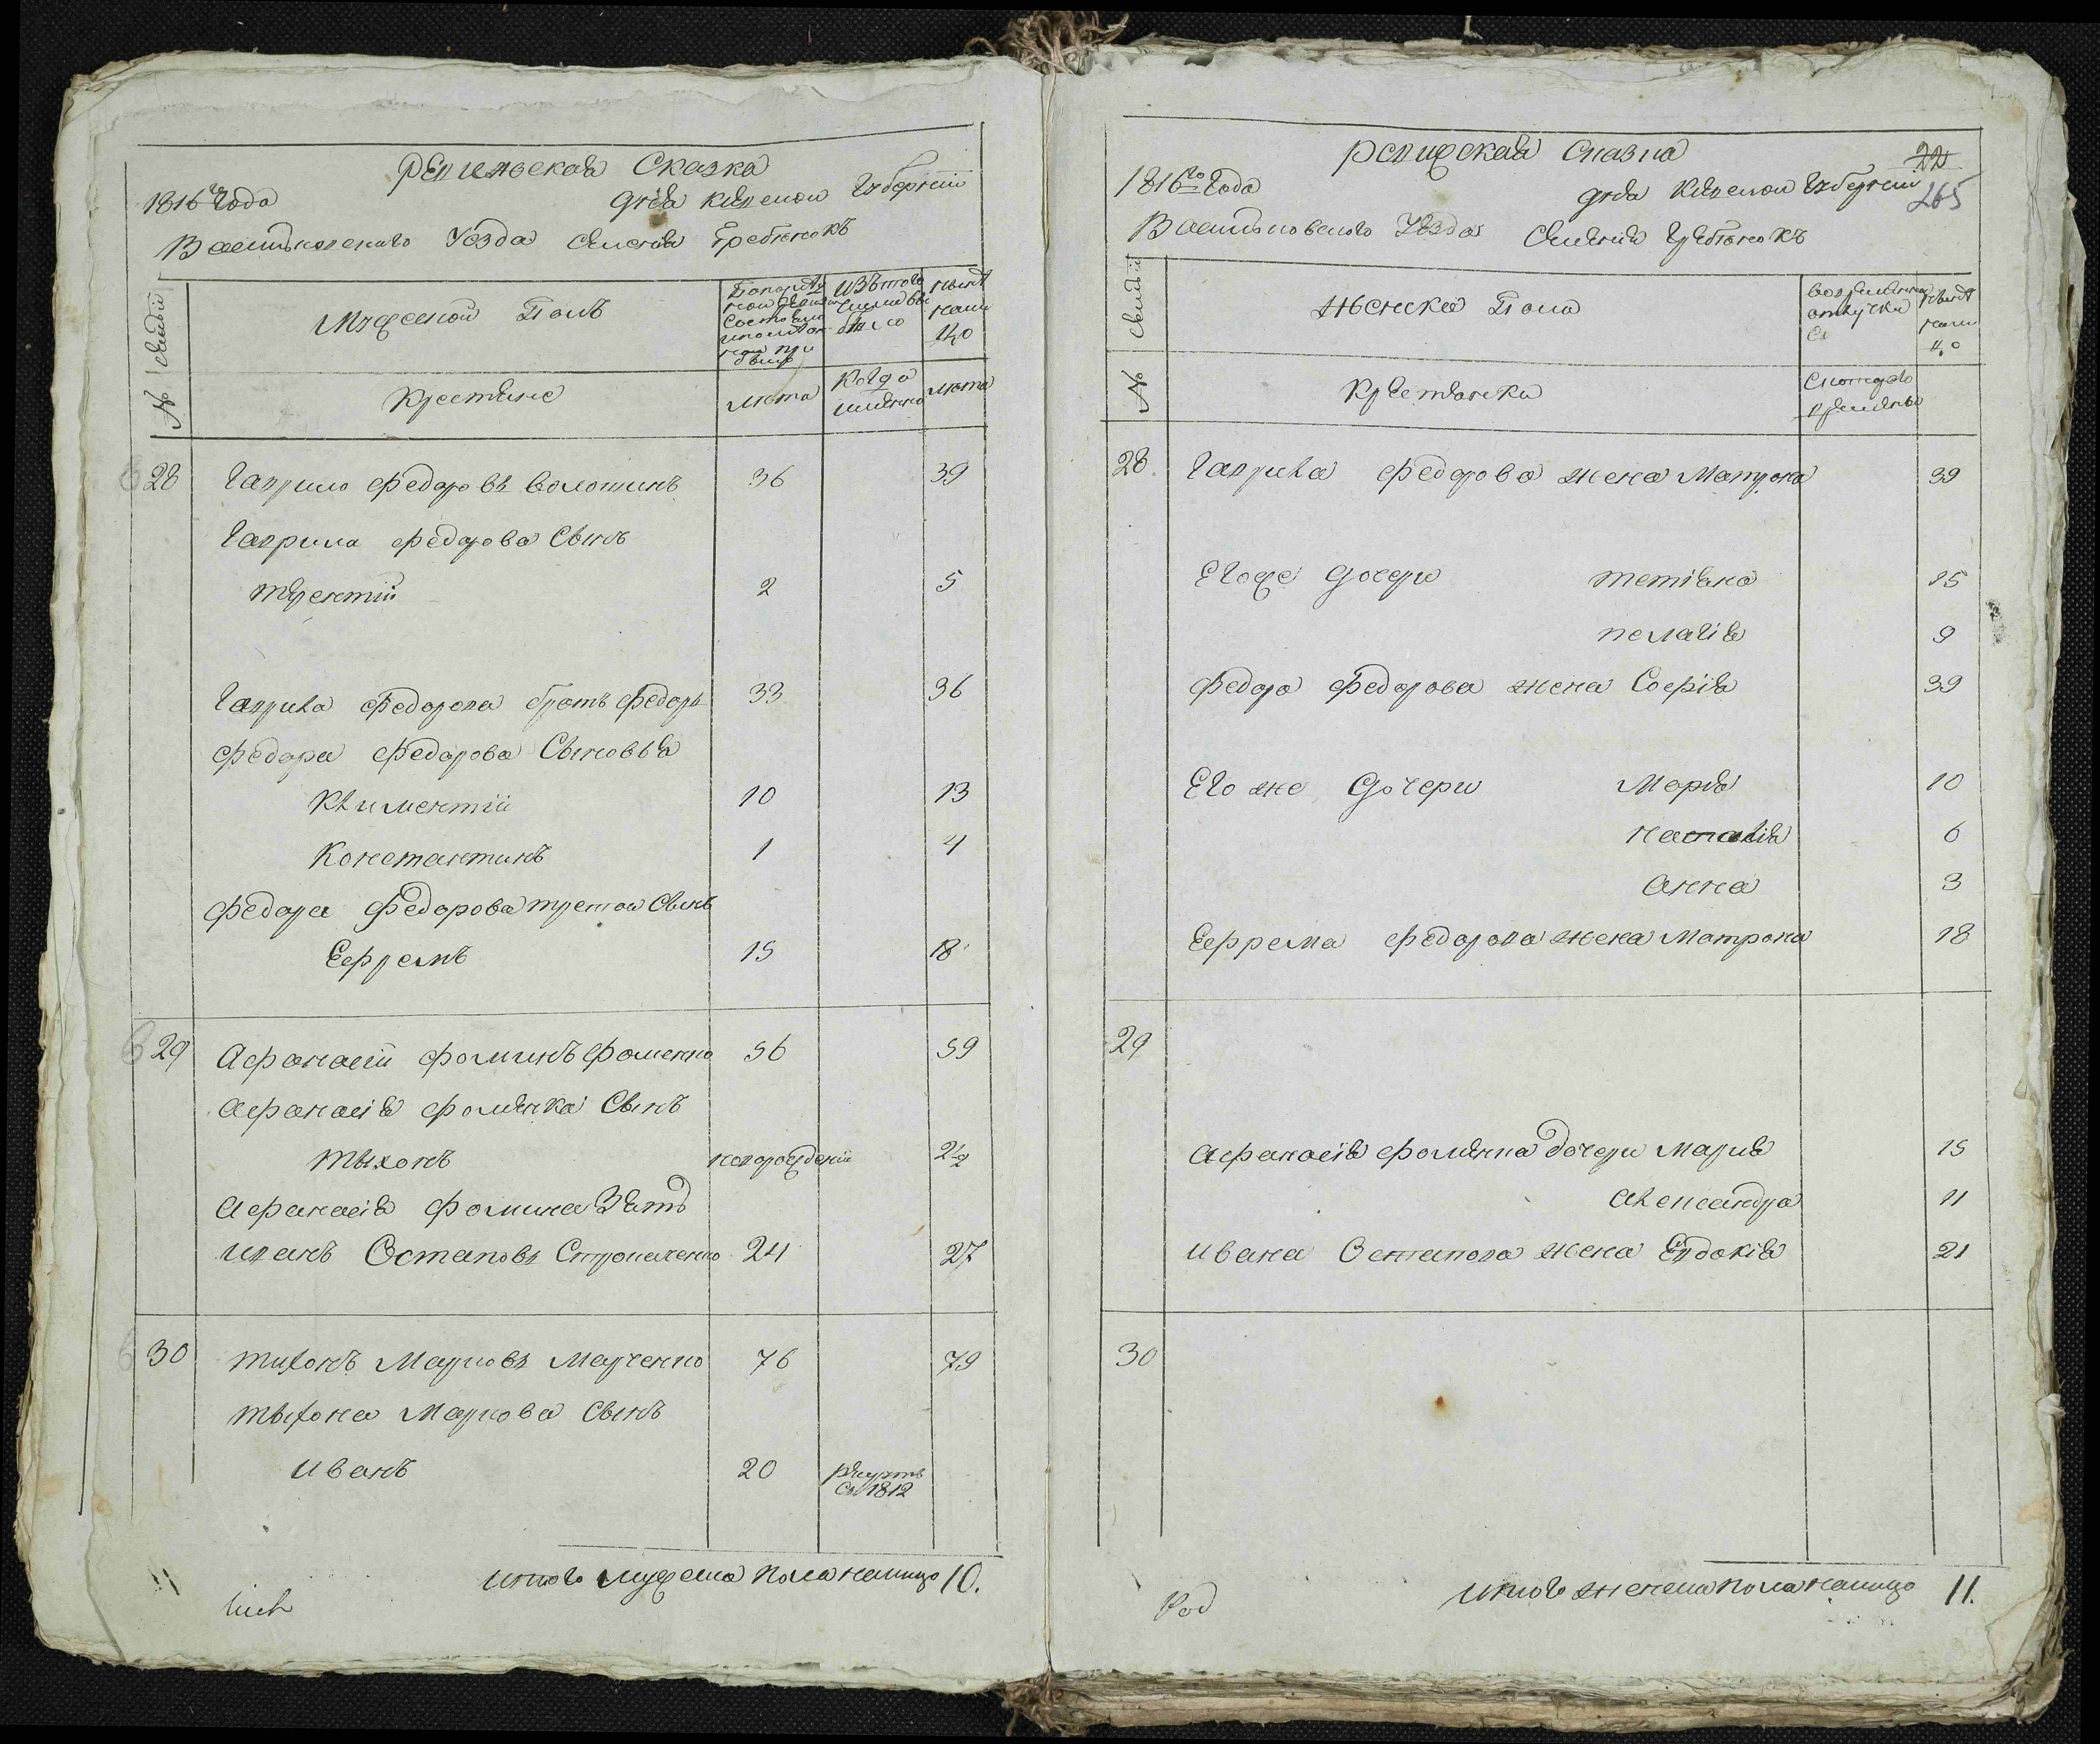 Ревизская Сказка
1816 года для Киевской Губернии
Васильковского Уезда Селения Гребенокъ
№ Семьи
Мужеской Полъ
Крестьяне
Лета
Изъ того числа выбыло
Когда именно
Ныне налицо
Лета
28 Гаврило Федоровъ Волошинъ 36 39
Гаврила Федорова Сынъ
Терентий 2 5
Гаврила Федорова братъ Федоръ 33 36
Федора Федорова Сыновья
Климентий 10 13
Константинъ 1 4
Федора Федорова третой Сынъ
Ефремъ 15 18
29 Афанасий Фоминъ Фоменко 56 59
Афанасия Фоменка Сынъ
Тыхонъ новорожденый 2 1/2
Афанасия Фомина Зять
Иванъ Остаповъ 24 27
30 Тихонъ Марковъ Марченко 76 79
Тыхона Маркова Сынъ
Иванъ 20 рекрутъ
Съ 1812
итого мужеска пола налицо 10.
Ревизская Сказка
22
265
1816го Года для Киевской Губернии
Васильковского Уезда Селения Гребенокъ
№ Семьи
Женска Пола
Крестьянки
Во временной отлучке
Съ которого времены
Ныне налицо
28 Гаврила Федорова жена Матрона 39
Егоже Дочери Тетіяна 15
Пелагія 9
Федора Федорова жена Софія 39
Его же Дочери Марія 10
Наталія 6
Анна 3
Ефрема Федорова жена Матрона 18
29
Афанасія Фоменка Дочери Марія 15
Александра 11
Ивана Остапова жена Евдокія 21
30
итого женска пола налицо 11.